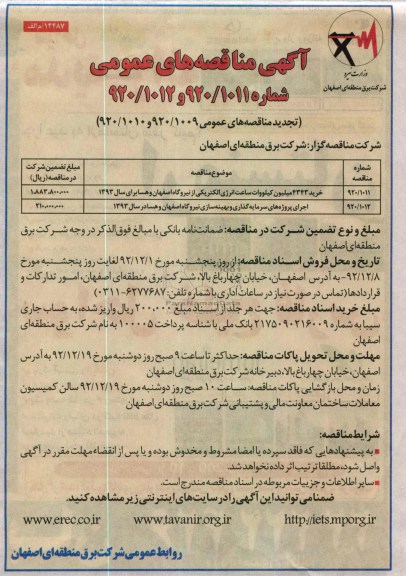 ۱۲۲۸۷/م الف
وزارت نیرو
شرکت برق منطقه‌ای اصفهان
آگهی مناقصه‌های عمومی
شماره ۹۲۰/۱۰۱۱ و ۹۲۰/۱۰۱۲
(تجدید مناقصه‌های عمومی ۹۲۰/۱۰۰۹ و ۹۲۰/۱۰۱۰)
شرکت مناقصه گزار: شرکت برق منطقه‌ای اصفهان
شماره مناقصه | موضوع مناقصه | مبلغ تضمین شرکت در مناقصه (ریال)
۹۲۰/۱۰۱۱ | خرید ۴۳۴۳ میلیون کیلووات ساعت انرژی الکتریکی از نیروگاه اصفهان و هسا برای سال ۱۳۹۳ | ۱.۸۸۳.۸۰۰.۰۰۰
۹۲۰/۱۰۱۲ | اجرای پروژه‌های سرمایه گذاری و بهینه‌سازی نیروگاه اصفهان و هسا در سال ۱۳۹۳ | ۲۱۰.۰۰۰.۰۰۰
مبلغ و نوع تضمین شرکت در مناقصه: ضمانت‌نامه بانکی با مبالغ فوق‌الذکر در وجه شرکت برق
منطقه‌ای اصفهان
تاریخ و محل فروش اسناد مناقصه: از روز پنجشنبه مورخ ۹۲/۱۲/۱ لغایت روز پنجشنبه مورخ
۹۲/۱۲/۸- به آدرس اصفهان، خیابان چهارباغ بالا، شرکت برق منطقه‌ای اصفهان، امور تدارکات و
قراردادها (تماس در صورت نیاز در ساعات اداری با شماره تلفن: ۶۲۷۷۶۸۷-۰۳۱۱)
مبلغ خرید اسناد مناقصه: جهت هر جلد از اسناد مبلغ ۲۰۰.۰۰۰ ریال واریز شده، به حساب جاری
سیبا به شماره ۲۱۷۵۰۹۰۲۱۶۰۰۹ بانک ملی با شناسه پرداخت ۱۰۰۰۰۵ به نام شرکت برق منطقه‌ای
اصفهان
مهلت و محل تحویل پاکات مناقصه: حداکثر تا ساعت ۹ صبح روز دوشنبه مورخ ۹۲/۱۲/۱۹ به آدرس
اصفهان، خیابان چهارباغ بالا، دبیرخانه شرکت برق منطقه‌ای اصفهان
زمان و محل بازگشایی پاکات مناقصه: ساعت ۱۰ صبح روز دوشنبه مورخ ۹۲/۱۲/۱۹ سالن کمیسیون
معاملات ساختمان معاونت مالی و پشتیبانی شرکت برق منطقه‌ای اصفهان
شرایط مناقصه:
به پیشنهادهایی که فاقد سپرده یا امضا مشروط و مخدوش بوده و یا پس از انقضاء مهلت مقرر در آگهی
واصل شود، مطلقا ترتیب اثر داده نخواهد شد.
سایر اطلاعات و جزییات مربوطه در اسناد مناقصه مندرج است.
ضمنا می‌توانید این آگهی را در سایت‌های اینترنتی زیر مشاهده کنید.
www.erec.co.ir www.tavanir.org.ir http://iets.mporg.ir
روابط عمومی شرکت برق منطقه‌ای اصفهان